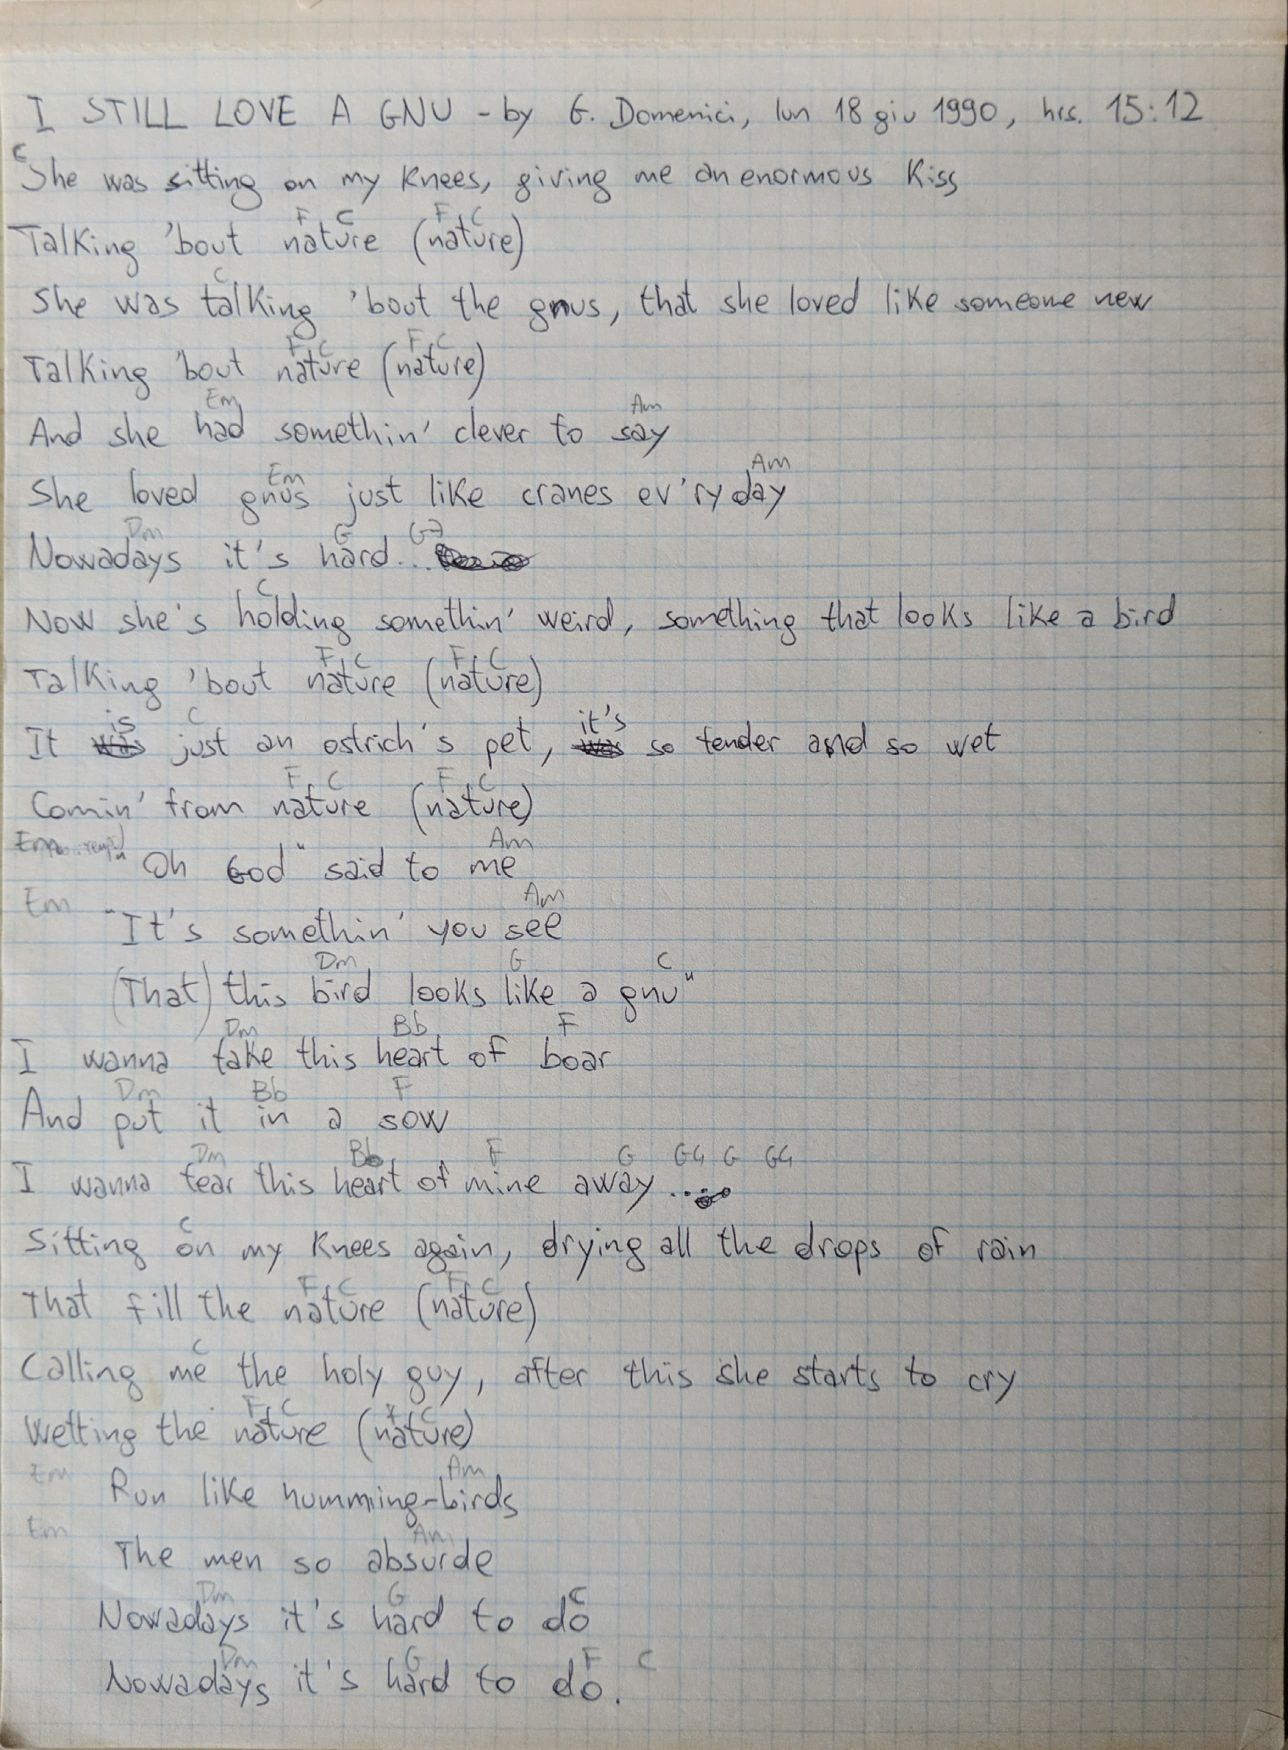 I STILL LOVE A GNU - by G. Domenici, lun 18 giu 1990, hrs. 15:12
C
She was sitting on my knees, giving me an enormous kiss
F C F C
Talking 'bout nature (nature)
C
She was talking 'bout the gnus, that she loved like someone new
F C F C
Talking 'bout nature (nature)
Em Am
And she had somethin' clever to say
Em Am
She loved gnus just like cranes ev'ryday
Dm G G7
Nowadays it's hard...
C
Now she's holding somethin' weird, something that looks like a bird
F C F C
Talking 'bout nature (nature)
is C it's
It was just an ostrich's pet, was so tender and so wet
F C F C
Comin' from nature (nature)
Em Am
"Oh God" said to me
Em Am
"It's somethin' you see
Dm G C
(That) this bird looks like a gnu"
Dm Bb F
I wanna take this heart of boar
Dm Bb F
And put it in a sow
Dm Bb F G G4 G G4
I wanna tear this heart of mine away...
C
Sitting on my knees again, drying all the drops of rain
F C F C
That fill the nature (nature)
C
Calling me the holy guy, after this she starts to cry
F C F C
Wetting the nature (nature)
Em Am
Run like humming-birds
Em Am
The men so absurde
Dm G C
Nowadays it's hard to do
Dm G F C
Nowadays it's hard to do.